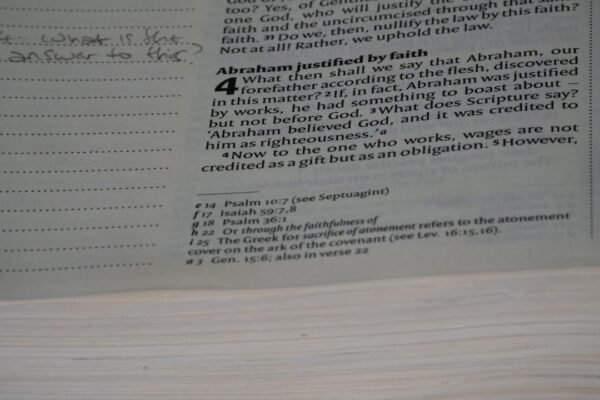 what is the
answer to this?
too? Yes, of
one God, who will justify the
faith and the uncircumcised through that
faith. 31 Do we, then, nullify the law by this faith?
Not at all! Rather, we uphold the law.
Abraham justified by faith
4 What then shall we say that Abraham, our
forefather according to the flesh, discovered
in this matter? 2 If, in fact, Abraham was justified
by works, he had something to boast about –
but not before God. 3 What does Scripture say?
‘Abraham believed God, and it was credited to
him as righteousness.’ a
4 Now to the one who works, wages are not
credited as a gift but as an obligation. 5 However,
e 14 Psalm 10:7 (see Septuagint)
f 17 Isaiah 59:7,8
g 18 Psalm 36:1
h 22 Or through the faithfulness of
i 25 The Greek for sacrifice of atonement refers to the atonement
cover on the ark of the covenant (see Lev. 16:15,16).
a 3 Gen. 15:6; also in verse 22